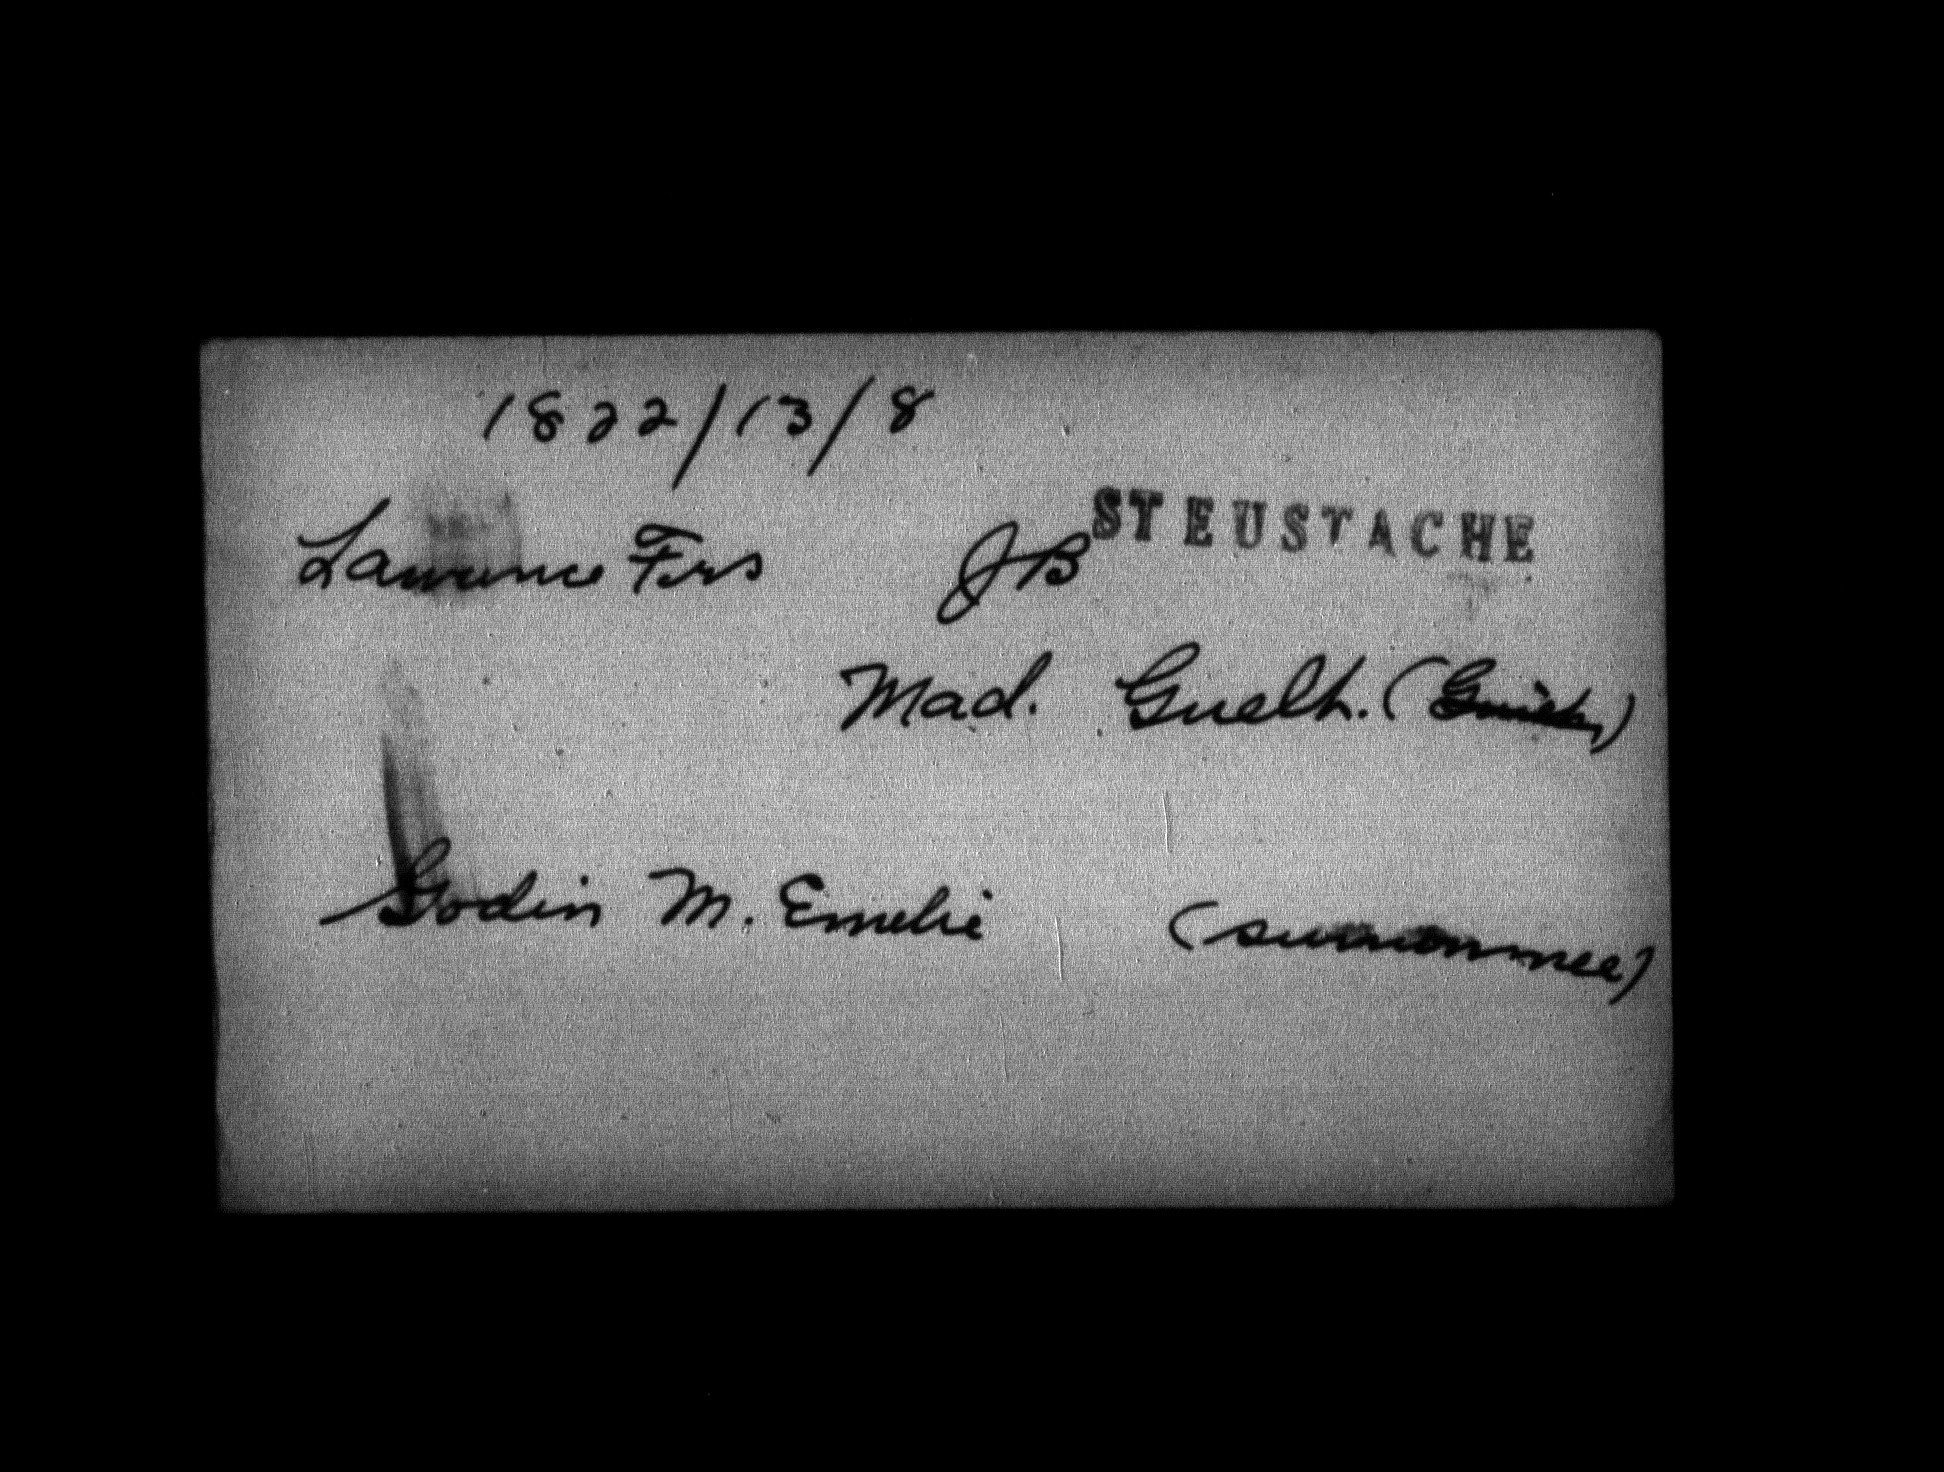 1822/13/8
Lawrence Frs JB STEUSTACHE
Mad. Guelh. ( )
Godin M. Emelie (surnommee)